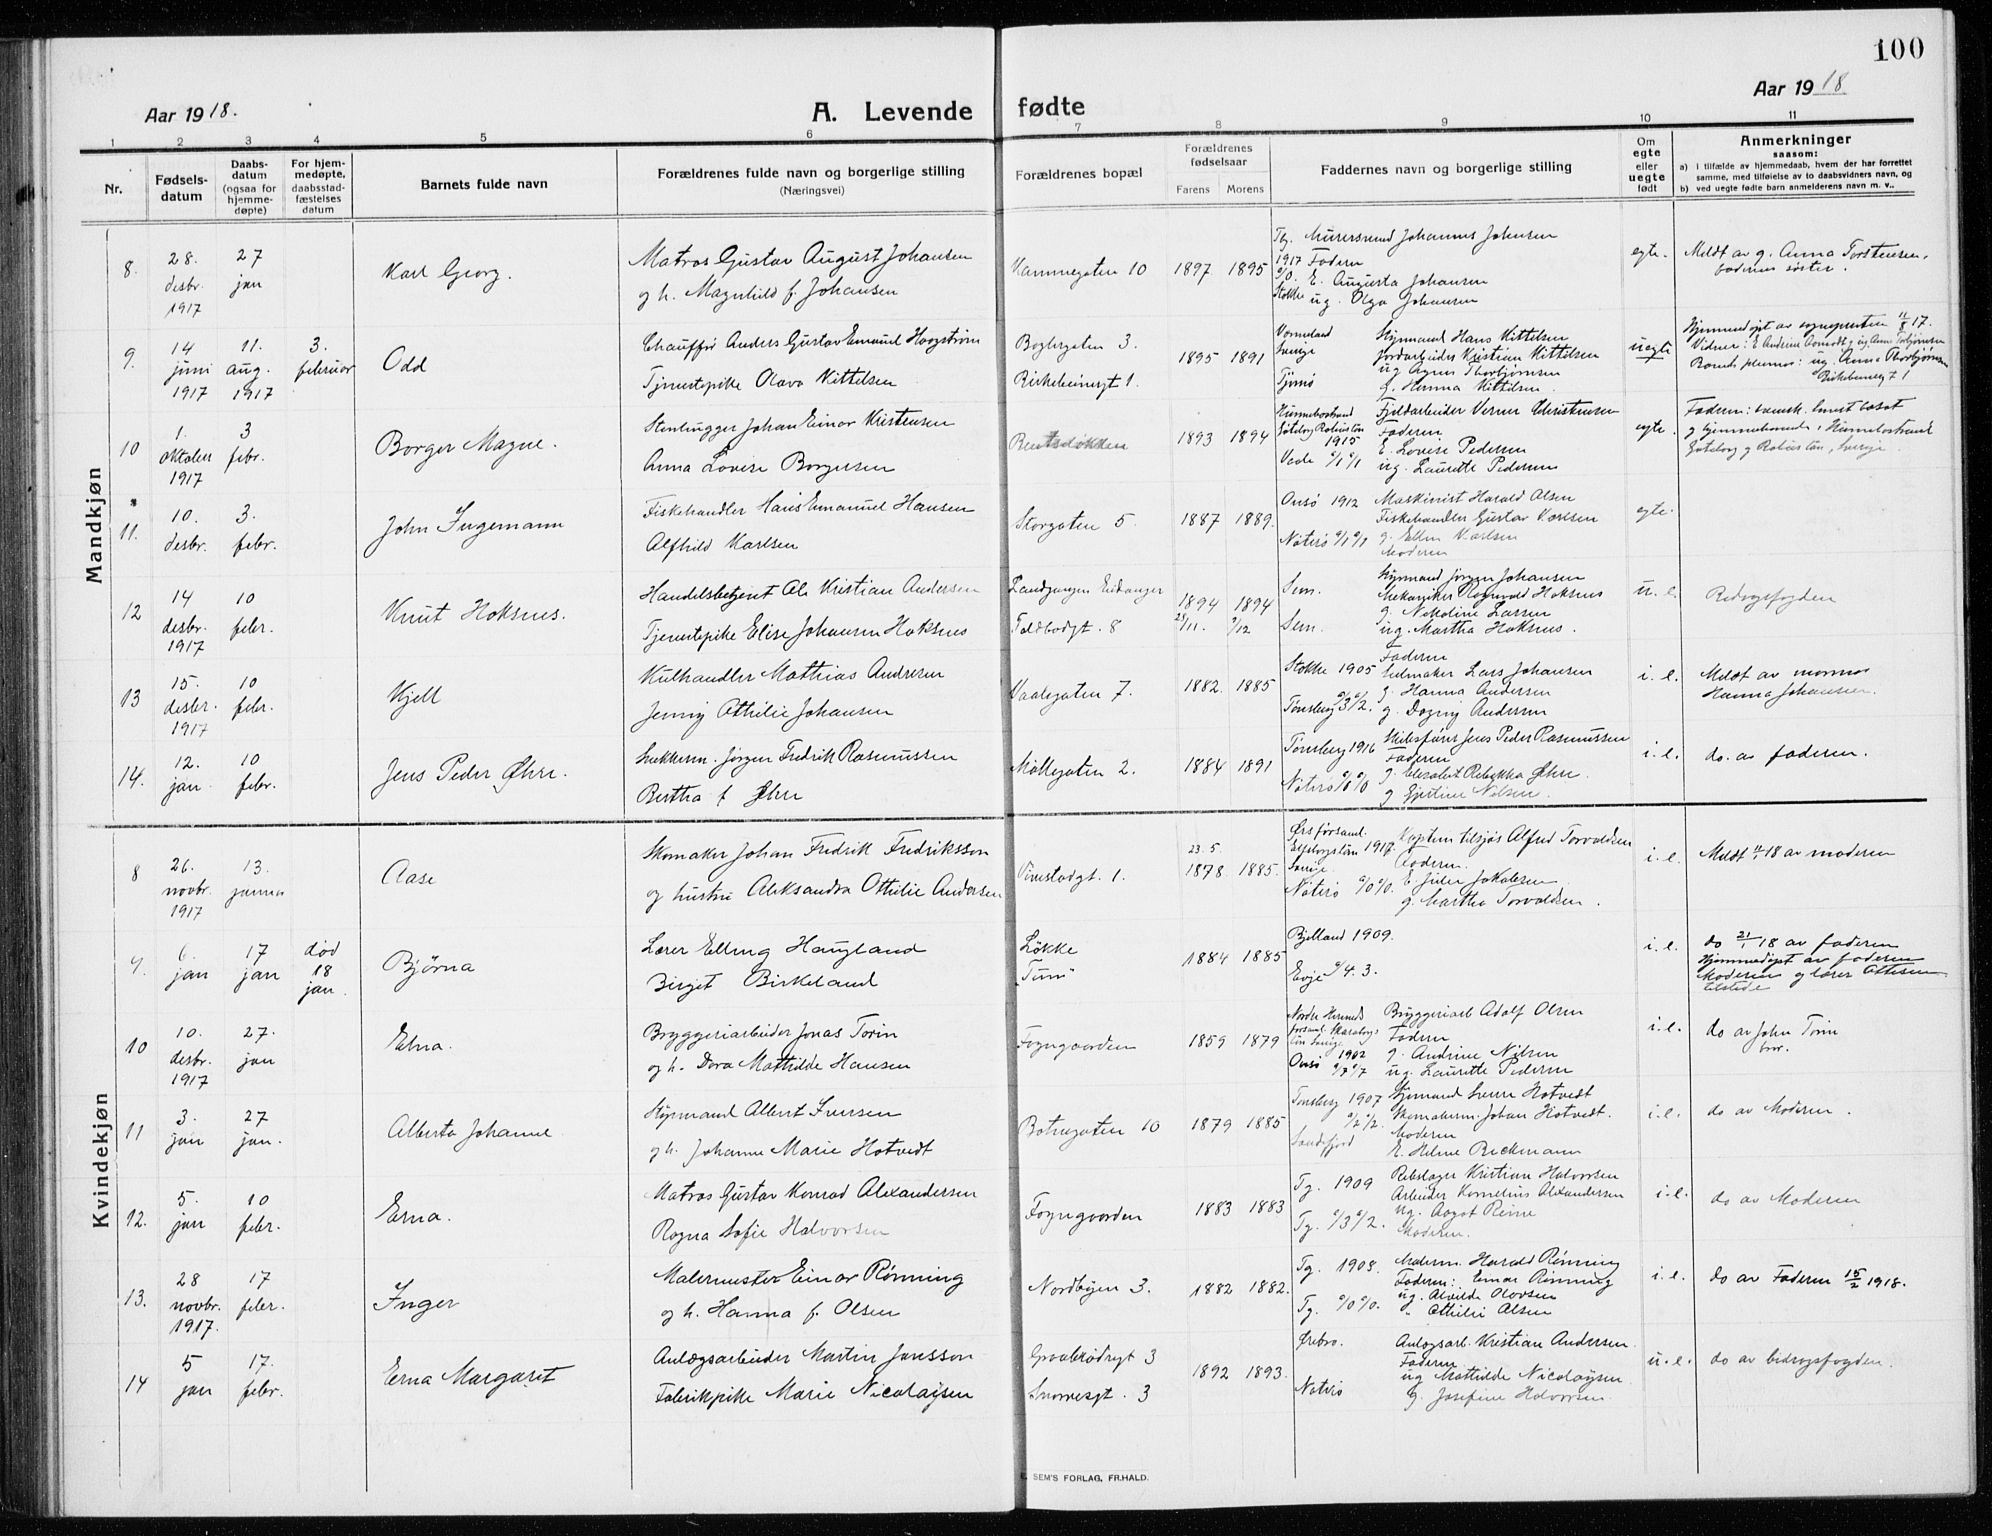 100
Aar 1918.
A. Levende fødte
Aar 1918
1 2 3 4 5 6 7 8 9 10 11
Nr.
Fødsels-
datum
Daabs-
datum
(ogsaa for
hjemme-
døpte)
For hjem-
medøpte,
daabsstad-
fæstelses
datum
Barnets fulde navn
Forældrenes fulde navn og borgerlige stilling
(Næringsvei)
Forældrenes bopæl
Forældrenes
fødselsaar
Farens Morens
Faddernes navn og borgerlige stilling
Om
egte
eller
uegte
født
Anmerkninger
saasom:
a) i tilfælde av hjemmedaab, hvem der har forrettet
samme, med tilføielse av to daabsvidners navn, og
b) ved uegte fødte barn anmelderens navn m. v..
Mandkjøn
8. 28. desbr. 1917
27 jan
Karl Georg.
Matros Gustav August Johansen
og h. Magnhild f. Johansen
Kammegaten 10
1897 1895
Tbg. Murersvend Johannes Johansen
1917 Faderen
E. Augusta Johansen
Stokke ug. Olga Johansen
egte.
Meldt av g. Anna Torstensen,
faderens søster.
9. 14 juni 1917
11. aug. 1917
3. februar
Odd
Chauffør Anders Gustav Emanuel Hagstrøm
Tjenestepike Olava Kittelsen
Boglergaten 3.
Birkebeinergt 1.
1895 1891
Værmeland Styrmand Hans Kittelsen
Sverige Jordarbeider Kristian Kittelsen
ug Agnes Thorbjørnsen
Tjømø g. Hanna Kittelsen
uegte
Hjemmedøpt av sognepresten 11/8 17.
Birkebeinergt 1
10 1. oktober 1917
3 febr.
Borger Magne.
Stenhugger Johan Einar Kristensen
Anna Lovise Borgersen
Bentsdøkken
1893 1894
Hunnebostrand Fjeldarbeider Verner Christensen
1915 Faderen
E. Lovise Pedersen
ug. Laurette Pedersen
egte.
11. * 10. desbr.
3. febr.
John Ingemann
Fiskehandler Hans Emanuel Hansen
Alfhild Karlsen
Storgaten 5
1887 1889.
Onsø 1912 Maskinist Harald Olsen
Fiskehandler Gustav Karlsen
Nøterø 0/1 0/1 g. Ellen Karlsen
Moderen
egte.
12 14 desbr. 1917
10 febr.
Knut Hoksnes.
Handelsbetjent Al. Kristian Andersen
Tjenestepike Elise Johansen Hoksnes
Landgangen Eidanger
Toldbodgt. 8
1894 1894
Sem. Styrmand Jørgen Johansen
Mekaniker Ragnvald Hoksnes
g. Nikoline Larsen
Sem. ug. Martha Hoksnes.
u. e.
Bidragsfogden
13 15. desbr. 1917
10 febr.
Kjell
Kulhandler Mathias Andresen
Jenny Othilie Johansen
Vaalegaten 7.
1882. 1885
Faderen
Stokke 1905 Seilmaker Lars Johansen
g. Hanna Andersen
Tønsberg 0/3 0/2. g. Dagny Andersen
i. e.
Meldt av mormor
Hanna Johansen.
14. 12. jan.
10 febr.
Jens Peder Øhre.
Jørgen Fredrik Rasmussen
Bertha f Øhre
Møllegaten 2.
1884 1891
Tønsberg 1916 Skibsfører Jens Peder Rasmussen
Faderen
g. Elisabet Rebekka Øhre
Nøterø 0/0 0/0 g Gjertine Nilsen.
i. e.
do. av faderen.
Kvindekjøn
8 26. novbr. 1917
13. januar
Aase
Skomaker Johan Fredrik Fredriksson
og hustru Aleksandra Othilie Andersen
Vinestadgt. 1.
23. 5. 1878. 1885.
1917 Kaptein tilsjøs Alfred Torvaldsen
Sverige. Faderen.
E. Julie Jakobsen
Nøterø 0/0 0/0. g. Martha Torvaldsen.
i. e.
Meldt 11/1 18 av moderen
9. 6. jan
17 jan
død 18 jan.
Bjørna
Lærer Elling Haugland
Birget Birkeland
Løkke
"Tun"
1884 1885
Bjelland 1909.
Evje 0/4. 3.
i. e.
do 21/1 18 av faderen
Hjemmedøpt av faderen
Moderen og lærer Ottesen
tilstede
10 10. desbr. 1917
27. jan
Edna.
Bryggeriarbeider Jonas Torin
og h. Dora Mathilde Hansen
Fogngaarden
1859 1879
Bryggeriarb Adolf Olsen
Faderen
1902 g. Andrine Nilsen
Onsø 0/7 0/7 ug. Laurette Pedersen
i. e.
do av John Torin
bror.
11 3. jan
27 jan.
Alberta Johanne
Styrmand Albert Iversen
og h. Johanne Marie Hotvedt
Botnegaten 10
1879 1885
Tønsberg 1907 Styrmand Sverre Hotvedt
0/2 0/2. Skomakerm. Johan Hotvedt.
Sandefjord Moderen
E. Helene Beckmann
i. e.
do av Moderen.
12. 5. jan
10 febr.
Erna.
Matros Gustav Konrad Alexandersen
Ragna Sofie Halvorsen
Fogngaarden
1883 1883
Tg. 1909 Rebslager Kristian Halvorsen
Arbeider Kornelius Alexandersen
ug. Aagot Reine
Tg. 0/3 0/2. Moderen.
i. e.
do av Moderen
13. 28 novbr. 1917.
17 febr.
Inger
Malermester Einar Rønning
og h. Hanna f. Olsen
Nordbyen 3.
1882 1882.
Tg. 1908. Malerm. Harald Rønning
Faderen: Einar Rønning
ug. Alvilde Olavsen
Tg. 0/0 0/0. " Othilie Olsen
i. e.
do av Faderen 15/2 1918.
14 5 jan
17. febr.
Erna Margaret
Anlægsarbeider Martin Jansson
Fabrikpike Marie Nicolaysen
Graabrødregt 3
Snorresgt. 3
1892 1893.
Ørebro. Anlægsarb. Kristian Andersen.
Faderen
ug Mathilde Nicolaysen.
Nøterø g. Josefine Halvorsen.
u. e.
do av bidragsfogden.
E. SEM'S FORLAG, FR.HALD.